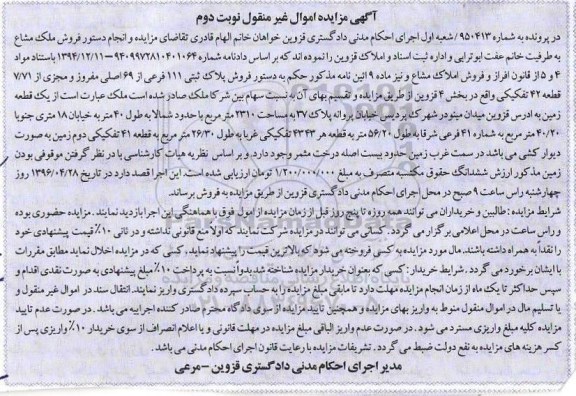 آگهی مزایده اموال غیر منقول نوبت دوم
در پرونده به شماره ۹۵۰۴۱۳/شعبه اول اجرای احکام مدنی دادگستری قزوین خواهان خانم الهام قادری تقاضای مزایده و انجام دستور فروش ملک مشاع
به طرفیت خانم عفت ابوترابی و اداره ثبت اسناد و املاک قزوین را نموده اند که بر اساس دادنامه شماره ۹۴۰۹۹۷۲۸۱۰۴۰۱۰۶۴-۱۳۹۴/۱۲/۱۱ باستناد مواد
۴ و ۵ از قانون افراز و فروش املاک مشاع و نیز ماده ۹ آئین نامه مذکور حکم به دستور فروش پلاک ثبتی ۱۱۱ فرعی از ۶۹ اصلی مفروز و مجزی از ۷/۷۱
قطعه ۴۲ تفکیکی واقع در بخش ۴ قزوین از طریق مزایده و تقسیم بهای آن به نسبت سهام بین شرکا ملک صادر شده است ملک عبارت است از یک قطعه
زمین به آدرس قزوین میدان مینودر شهرک پردیس خیابان پروانه پلاک ۳۷ به مساحت ۲۳۱۰ متر مربع با حدود شمالا به طول ۴۰ متر به خیابان ۱۸ متری جنوبا
۴۰/۲۰ متر مربع به شماره ۴۱ فرعی شرقا به طول ۵۶/۲۰ متر به قطعه ۴۳۴۳ تفکیکی غربا به طول ۲۶/۳۰ متر مربع به قطعه ۴۱ تفکیکی دوم زمین به صورت
دیوار کشی می باشد در سمت غرب زمین حدود بیست اصله درخت مثمر وجود دارد. و بر اساس نظریه هیات کارشناسی با در نظر گرفتن موقوفی بودن
زمین مذکور ارزش ششدانگ حقوق مکتسبه متصرف به مبلغ ۱/۲۰۰/۰۰۰/۰۰۰ تومان ارزیابی شده است. این اجرا قصد دارد در تاریخ ۱۳۹۶/۰۴/۲۸ روز
چهارشنبه راس ساعت ۹ صبح در محل اجرای احکام مدنی دادگستری قزوین از طریق مزایده به فروش برساند.
شرایط مزایده : طالبین و خریداران می توانند همه روزه تا پنج روز قبل از زمان مزایده از اموال فوق با هماهنگی این اجرا بازدید نمایند. مزایده حضوری بوده
و راس ساعت در محل اعلامی برگزار می گردد. کسانی می توانند در مزایده شرکت نمایند که اولا منع قانونی نداشته و در ثانی ۱۰٪ قیمت پیشنهادی خود
را نقدا به همراه داشته باشند. مال مورد مزایده به کسی فروخته می شود که بالاترین قیمت را پیشنهاد نماید. کسی که در مزایده اخلال نماید مطابق مقررات
با ایشان برخورد می گردد. شرایط خریدار : کسی که بعنوان خریدار مزایده شناخته شد بدوا نسبت به پرداخت ۱۰٪ مبلغ پیشنهادی به صورت نقدی اقدام و
سپس حداکثر تا یک ماه از زمان انجام مزایده مهلت دارد تا مابقی مبلغ مزایده را به حساب سپرده دادگستری واریز نمایند. انتقال سند در اموال غیر منقول و
یا تسلیم مال در اموال منقول منوط به واریز بهای مزایده و همچنین تایید مزایده از سوی دادگاه محترم صادر کننده اجراییه می باشد. در صورت عدم تایید
مزایده کلیه مبلغ واریزی مسترد می شود. در صورت عدم واریز الباقی مبلغ مزایده در مهلت قانونی و یا اعلام انصراف از سوی خریدار ۱۰٪ واریزی پس از
کسر هزینه های مزایده به نفع دولت ضبط می گردد. تشریفات مزایده با رعایت قانون اجرای احکام مدنی می باشد.
مدیر اجرای احکام مدنی دادگستری قزوین -مرعی